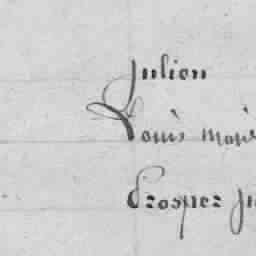 Julien
Louis Marie
Prosper Ju